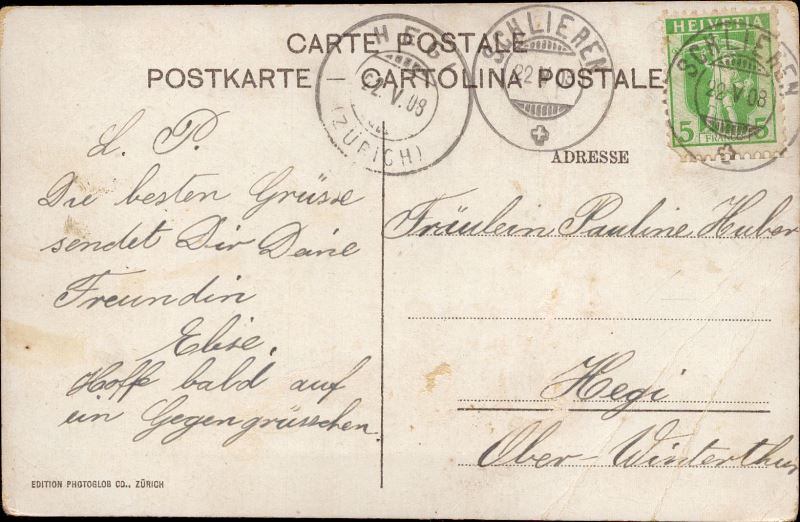 CARTE POSTALE
POSTKARTE – CARTOLINA POSTALE
HEGI
22.V.08
(ZÜRICH)
SCHLIEREN
22.V.08
HELVETIA
5 FRANCO 5
SCHLIEREN
22.V.08
ADRESSE
L. P.
Die besten Grüsse
sendet Dir Deine
Freundin
Elise.
Hoffe bald auf
ein Gegengrüsschen.
Fräulein Pauline Huber
Hegi
Ober-Winterthur
EDITION PHOTOGLOB CO., ZÜRICH